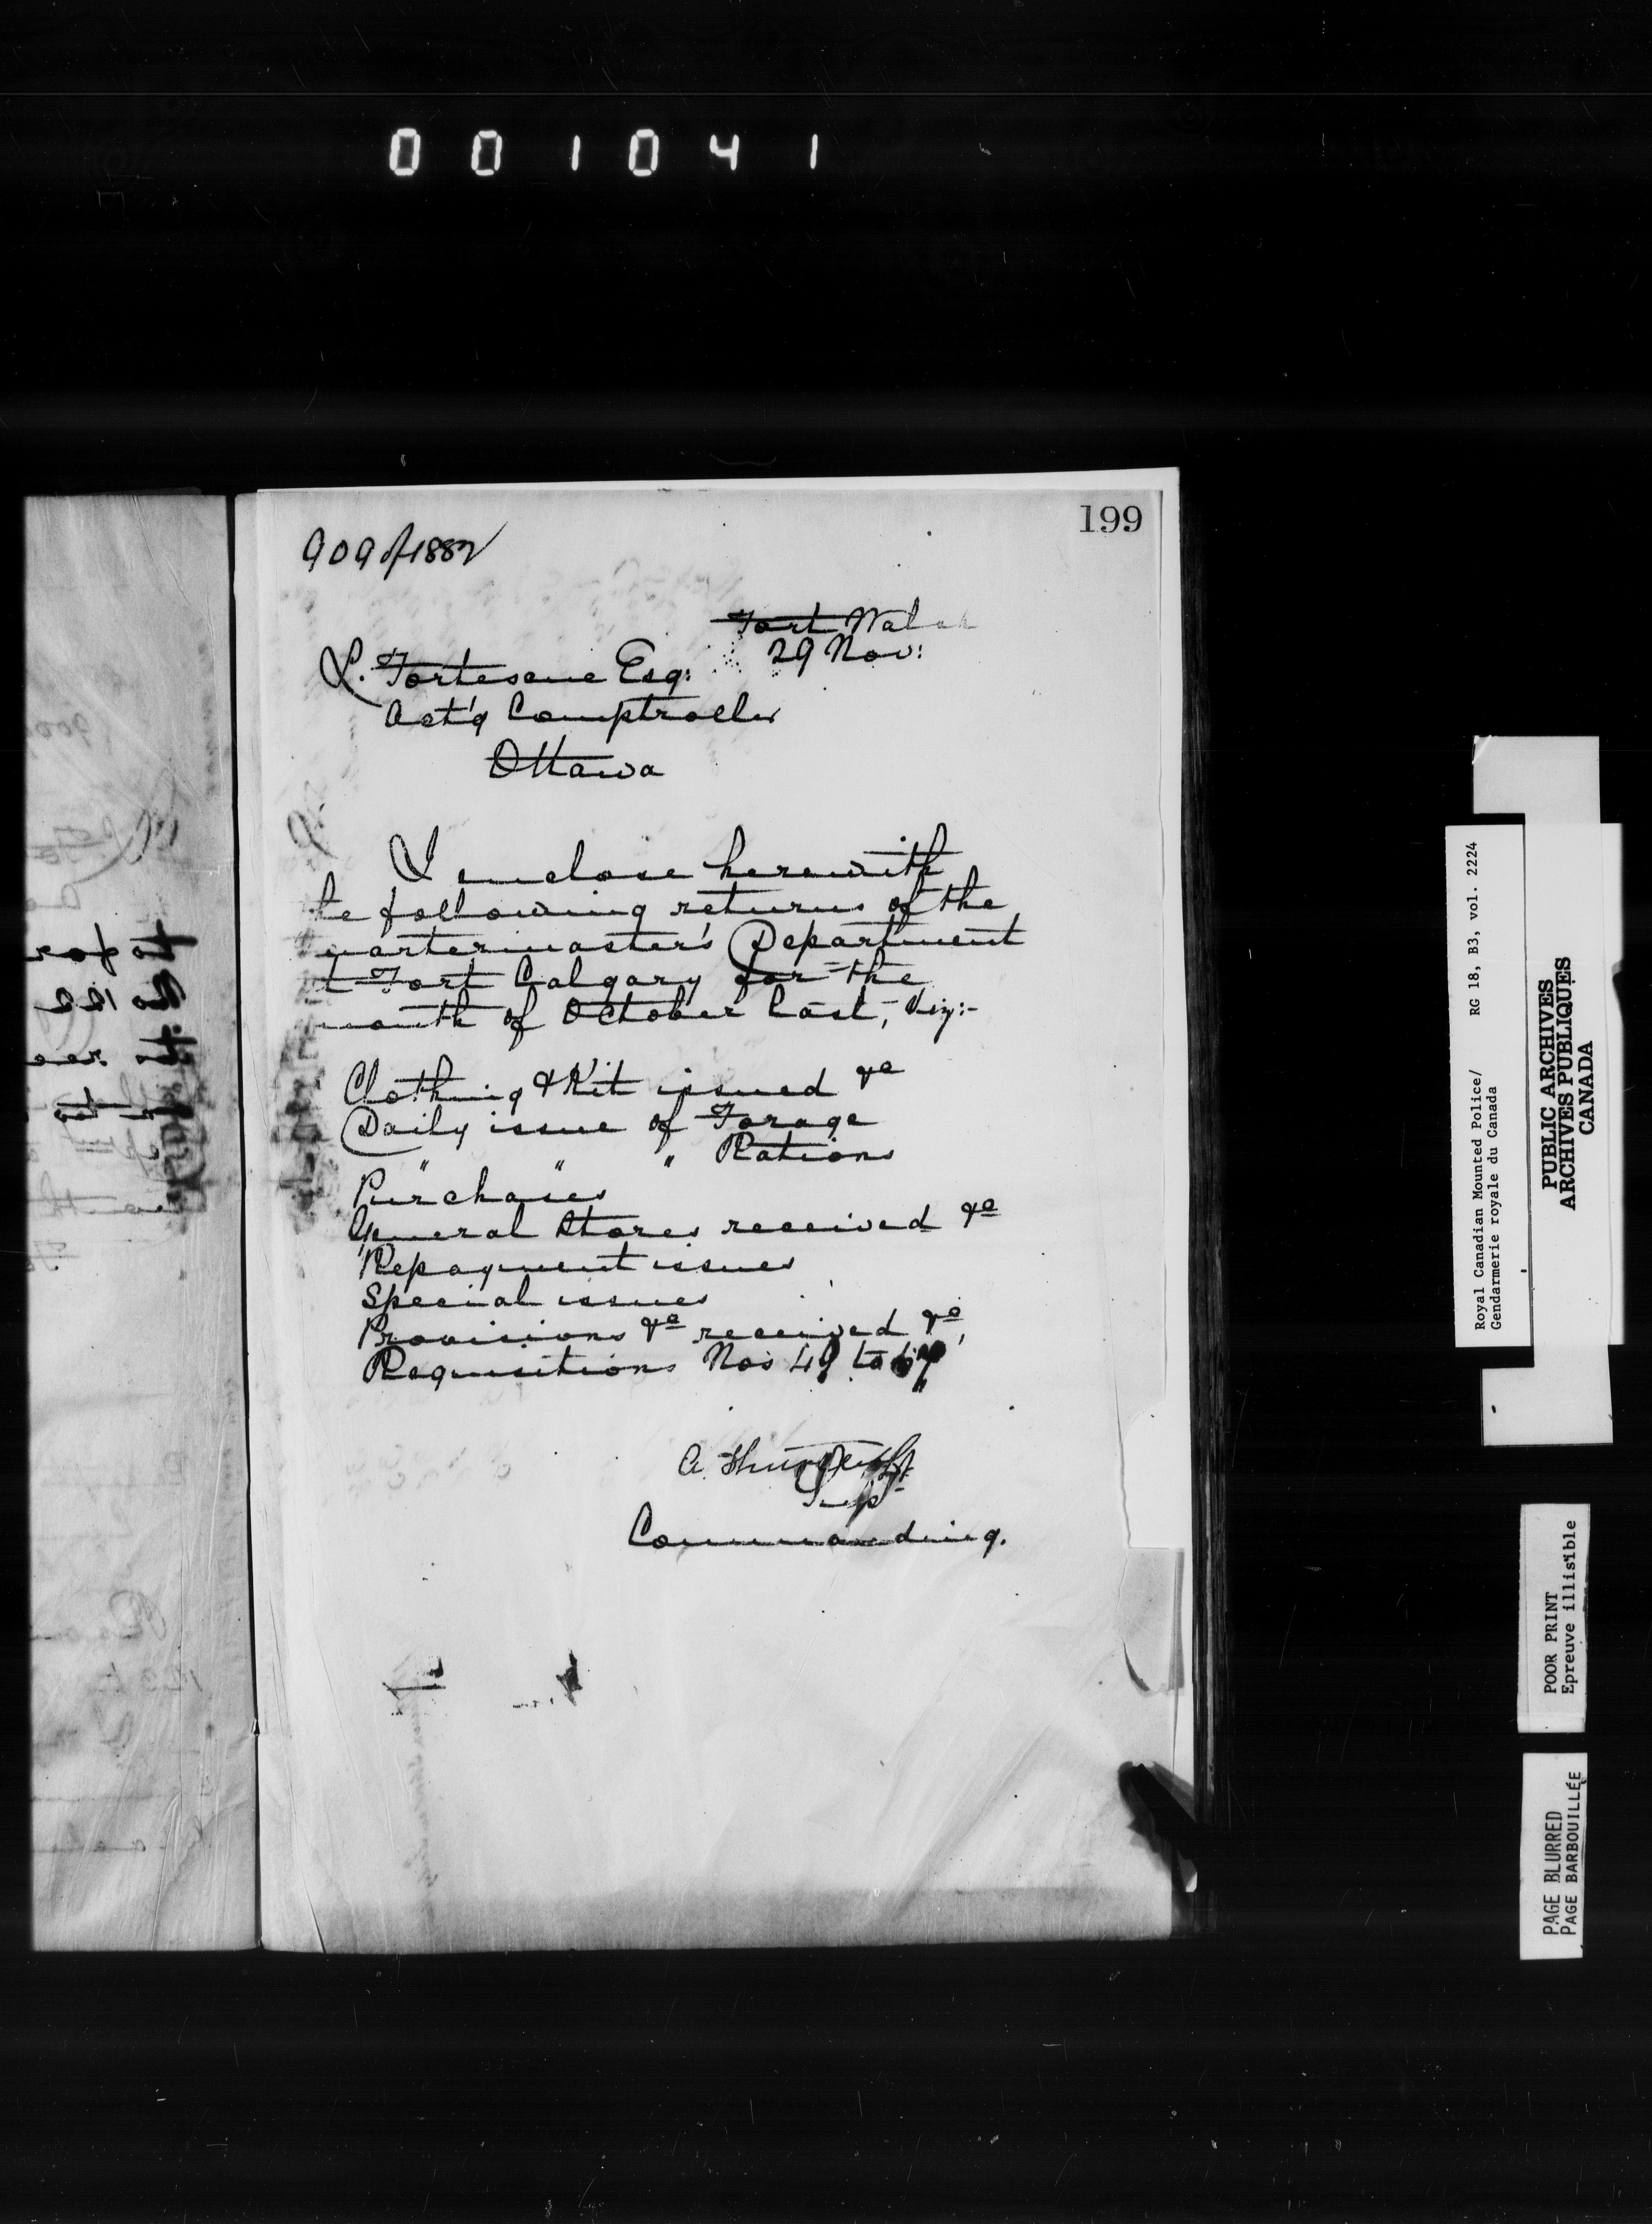 001041
199
909 of 1882
Fort Walsh
29 Nov:
L. Fortescue Esq:
Act'g Comptroller
Ottawa
I enclose herewith
he following returns of the
uartermaster's Department
t Fort Calgary for the
month of October last, viz:-
Clothing & Kit issued &c
Daily issue of Forage
" " " Rations
Purchases
General Stores received &c
Repayment issues
Special issues
Provisions &c received &c,
Requisitions Nos 49 to
A. Shurtliff
Supt
Commanding.
Royal Canadian Mounted Police/ RG 18, B3, vol. 2224
Gendarmerie royale du Canada
PUBLIC ARCHIVES
ARCHIVES PUBLIQUES
CANADA
POOR PRINT
Epreuve illisible
PAGE BLURRED
PAGE BARBOUILLÉE